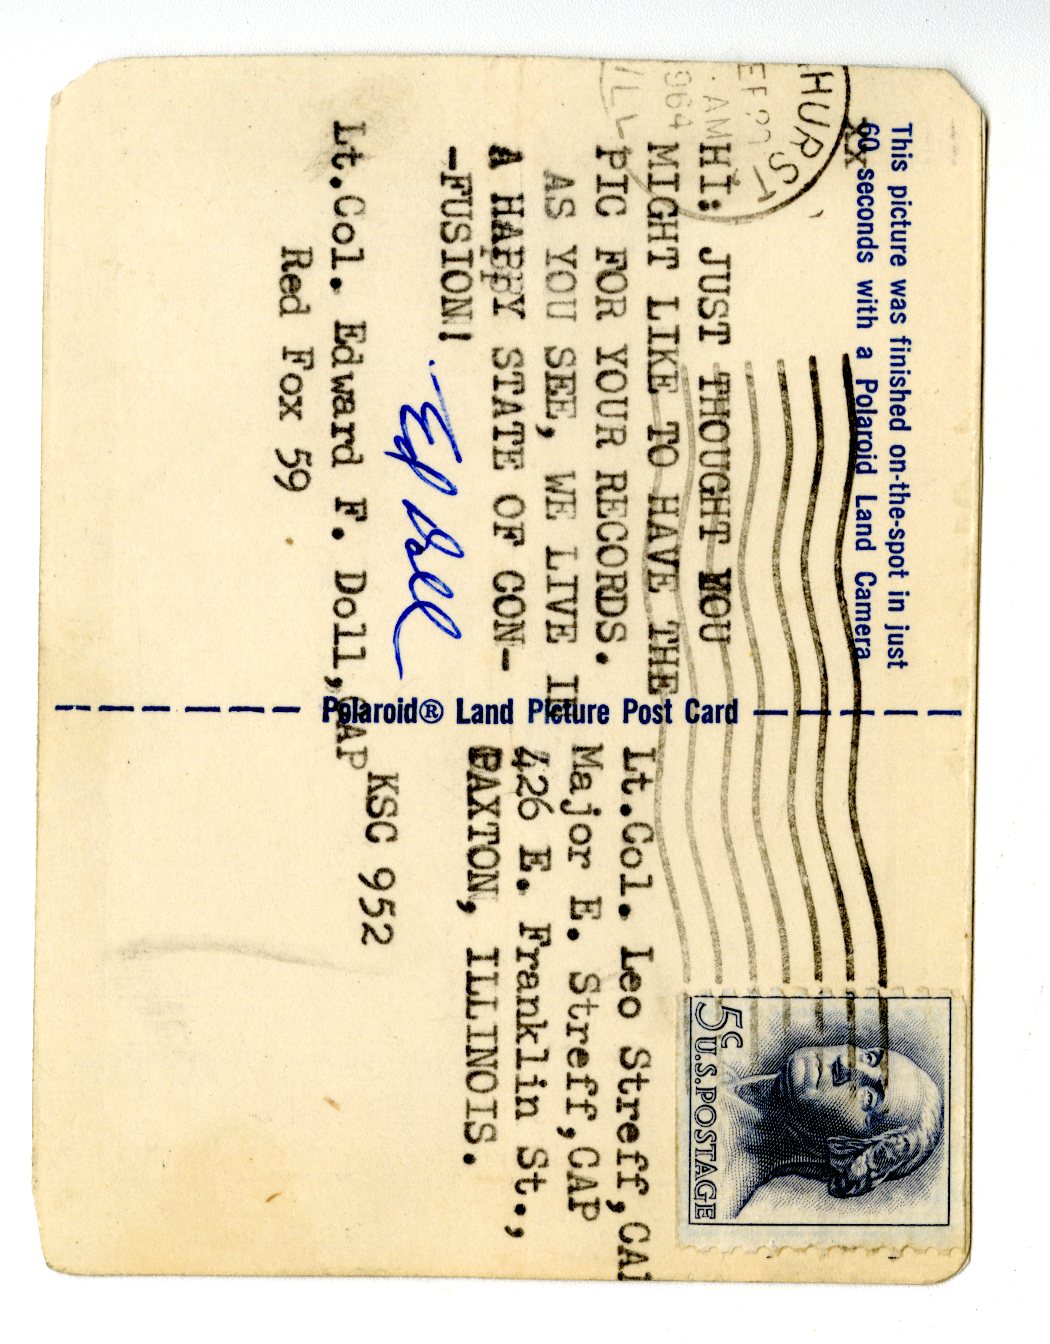 This picture was finished on-the-spot in just
60 seconds with a Polaroid Land Camera
xx
HURST
1964
AM
ILL
HI: JUST THOUGHT YOU
MIGHT LIKE TO HAVE THE
PIC FOR YOUR RECORDS.
AS YOU SEE, WE LIVE IN
A HAPPY STATE OF CON-
-FUSION!
Ed Doll
Lt.Col. Edward F. Doll, CAP
Red Fox 59
Polaroid® Land Picture Post Card
5c
U.S.POSTAGE
Lt.Col. Leo Streff,CAP
Major E. Streff,CAP
426 E. Franklin St.,
PAXTON, ILLINOIS.
KSC 952